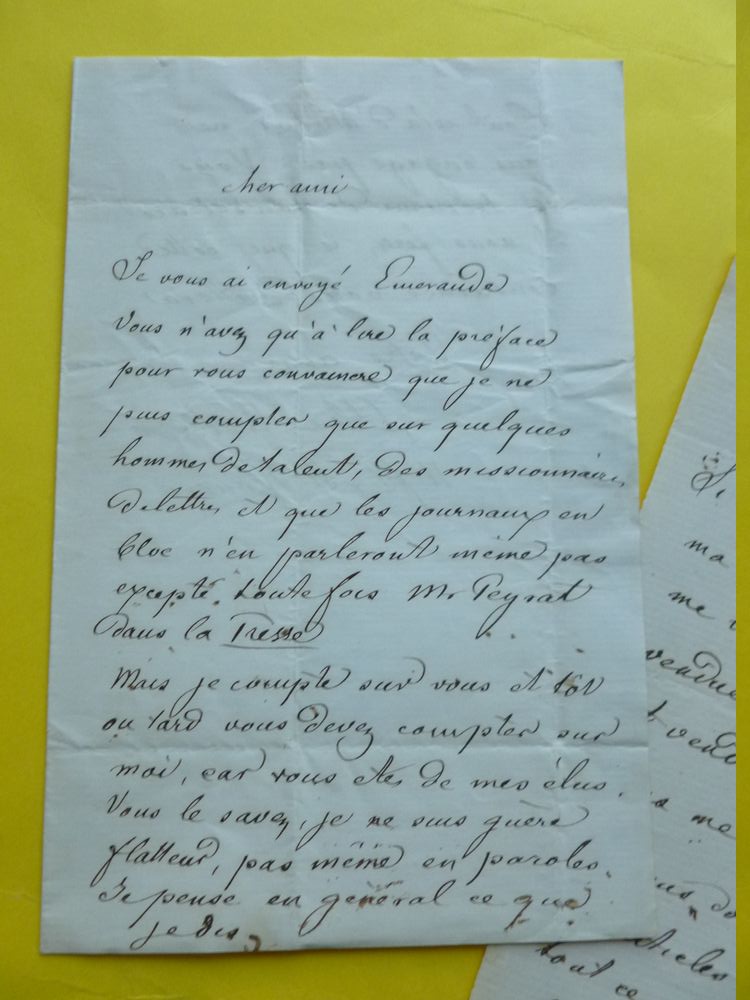 cher ami
Je vous ai envoyé Emeraude
Vous n'avez qu'à lire la préface
pour vous convaincre que je ne
puis compter que sur quelques
hommes de talent, des missionnaires
de lettres et que les journaux en
bloc n'en parleront même pas
excepté toutefois Mr Peyrat
dans la Presse
Mais je compte sur vous et tôt
ou tard vous devez compter sur
moi, car vous etes de mes élus.
Vous le savez, je ne suis guère
flatteur, pas même en paroles.
Je pense en général ce que
je dis
Je
ma
me
vendre
me
tout ce